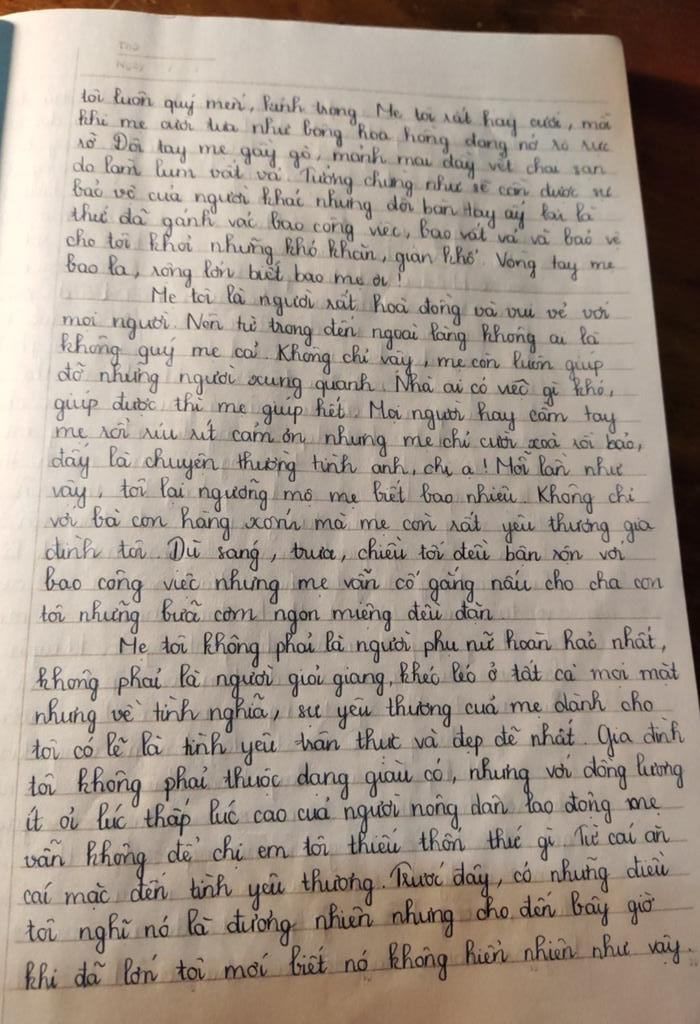 Thứ
Ngày
tôi luôn quý mến, kính trọng. Mẹ tôi rất hay cười, mỗi
khi mẹ cười tựa như bông hoa hồng đang nở rộ rực
rỡ. Đôi tay mẹ gầy gò, mảnh mai đầy vết chai sạn
do làm lụm vất vả. Tưởng chừng như sẽ cần được sự
bảo vệ của người khác nhưng đôi bàn tay ấy lại là
thứ đã gánh vác bao công việc, bao vất vả và bảo vệ
cho tôi khỏi những khó khăn, gian khổ. Vòng tay mẹ
bao la, rộng lớn biết bao mẹ ơi!
Mẹ tôi là người rất hoà đồng và vui vẻ với
mọi người. Nên từ trong đến ngoài làng không ai là
không quý mẹ cả. Không chỉ vậy, mẹ còn luôn giúp
đỡ những người xung quanh. Nhà ai có việc gì khó,
giúp được thì mẹ giúp hết. Mọi người hay cầm tay
mẹ rồi ríu rít cảm ơn nhưng mẹ chỉ cười xoà rồi bảo,
đấy là chuyện thường tình anh, chị ạ! Mỗi lần như
vậy, tôi lại ngưỡng mộ mẹ biết bao nhiêu. Không chỉ
với bà con hàng xóm mà mẹ còn rất yêu thương gia
đình tôi. Dù sáng, trưa, chiều tối đều bận rộn với
bao công việc nhưng mẹ vẫn cố gắng nấu cho cha con
tôi những bữa cơm ngon miệng đều đặn.
Mẹ tôi không phải là người phụ nữ hoàn hảo nhất,
không phải là người giỏi giang, khéo léo ở tất cả mọi mặt
nhưng về tình nghĩa, sự yêu thương của mẹ dành cho
tôi có lẽ là tình yêu trân thực và đẹp đẽ nhất. Gia đình
tôi không phải thuộc dạng giàu có, nhưng với đồng lương
ít ỏi lúc thấp lúc cao của người nông dân lao động mẹ
vẫn không để chị em tôi thiếu thốn thứ gì. Từ cái ăn
cái mặc đến tình yêu thương. Trước đây, có những điều
tôi nghĩ nó là đương nhiên nhưng cho đến bây giờ
khi đã lớn tôi mới biết nó không hiển nhiên như vậy.